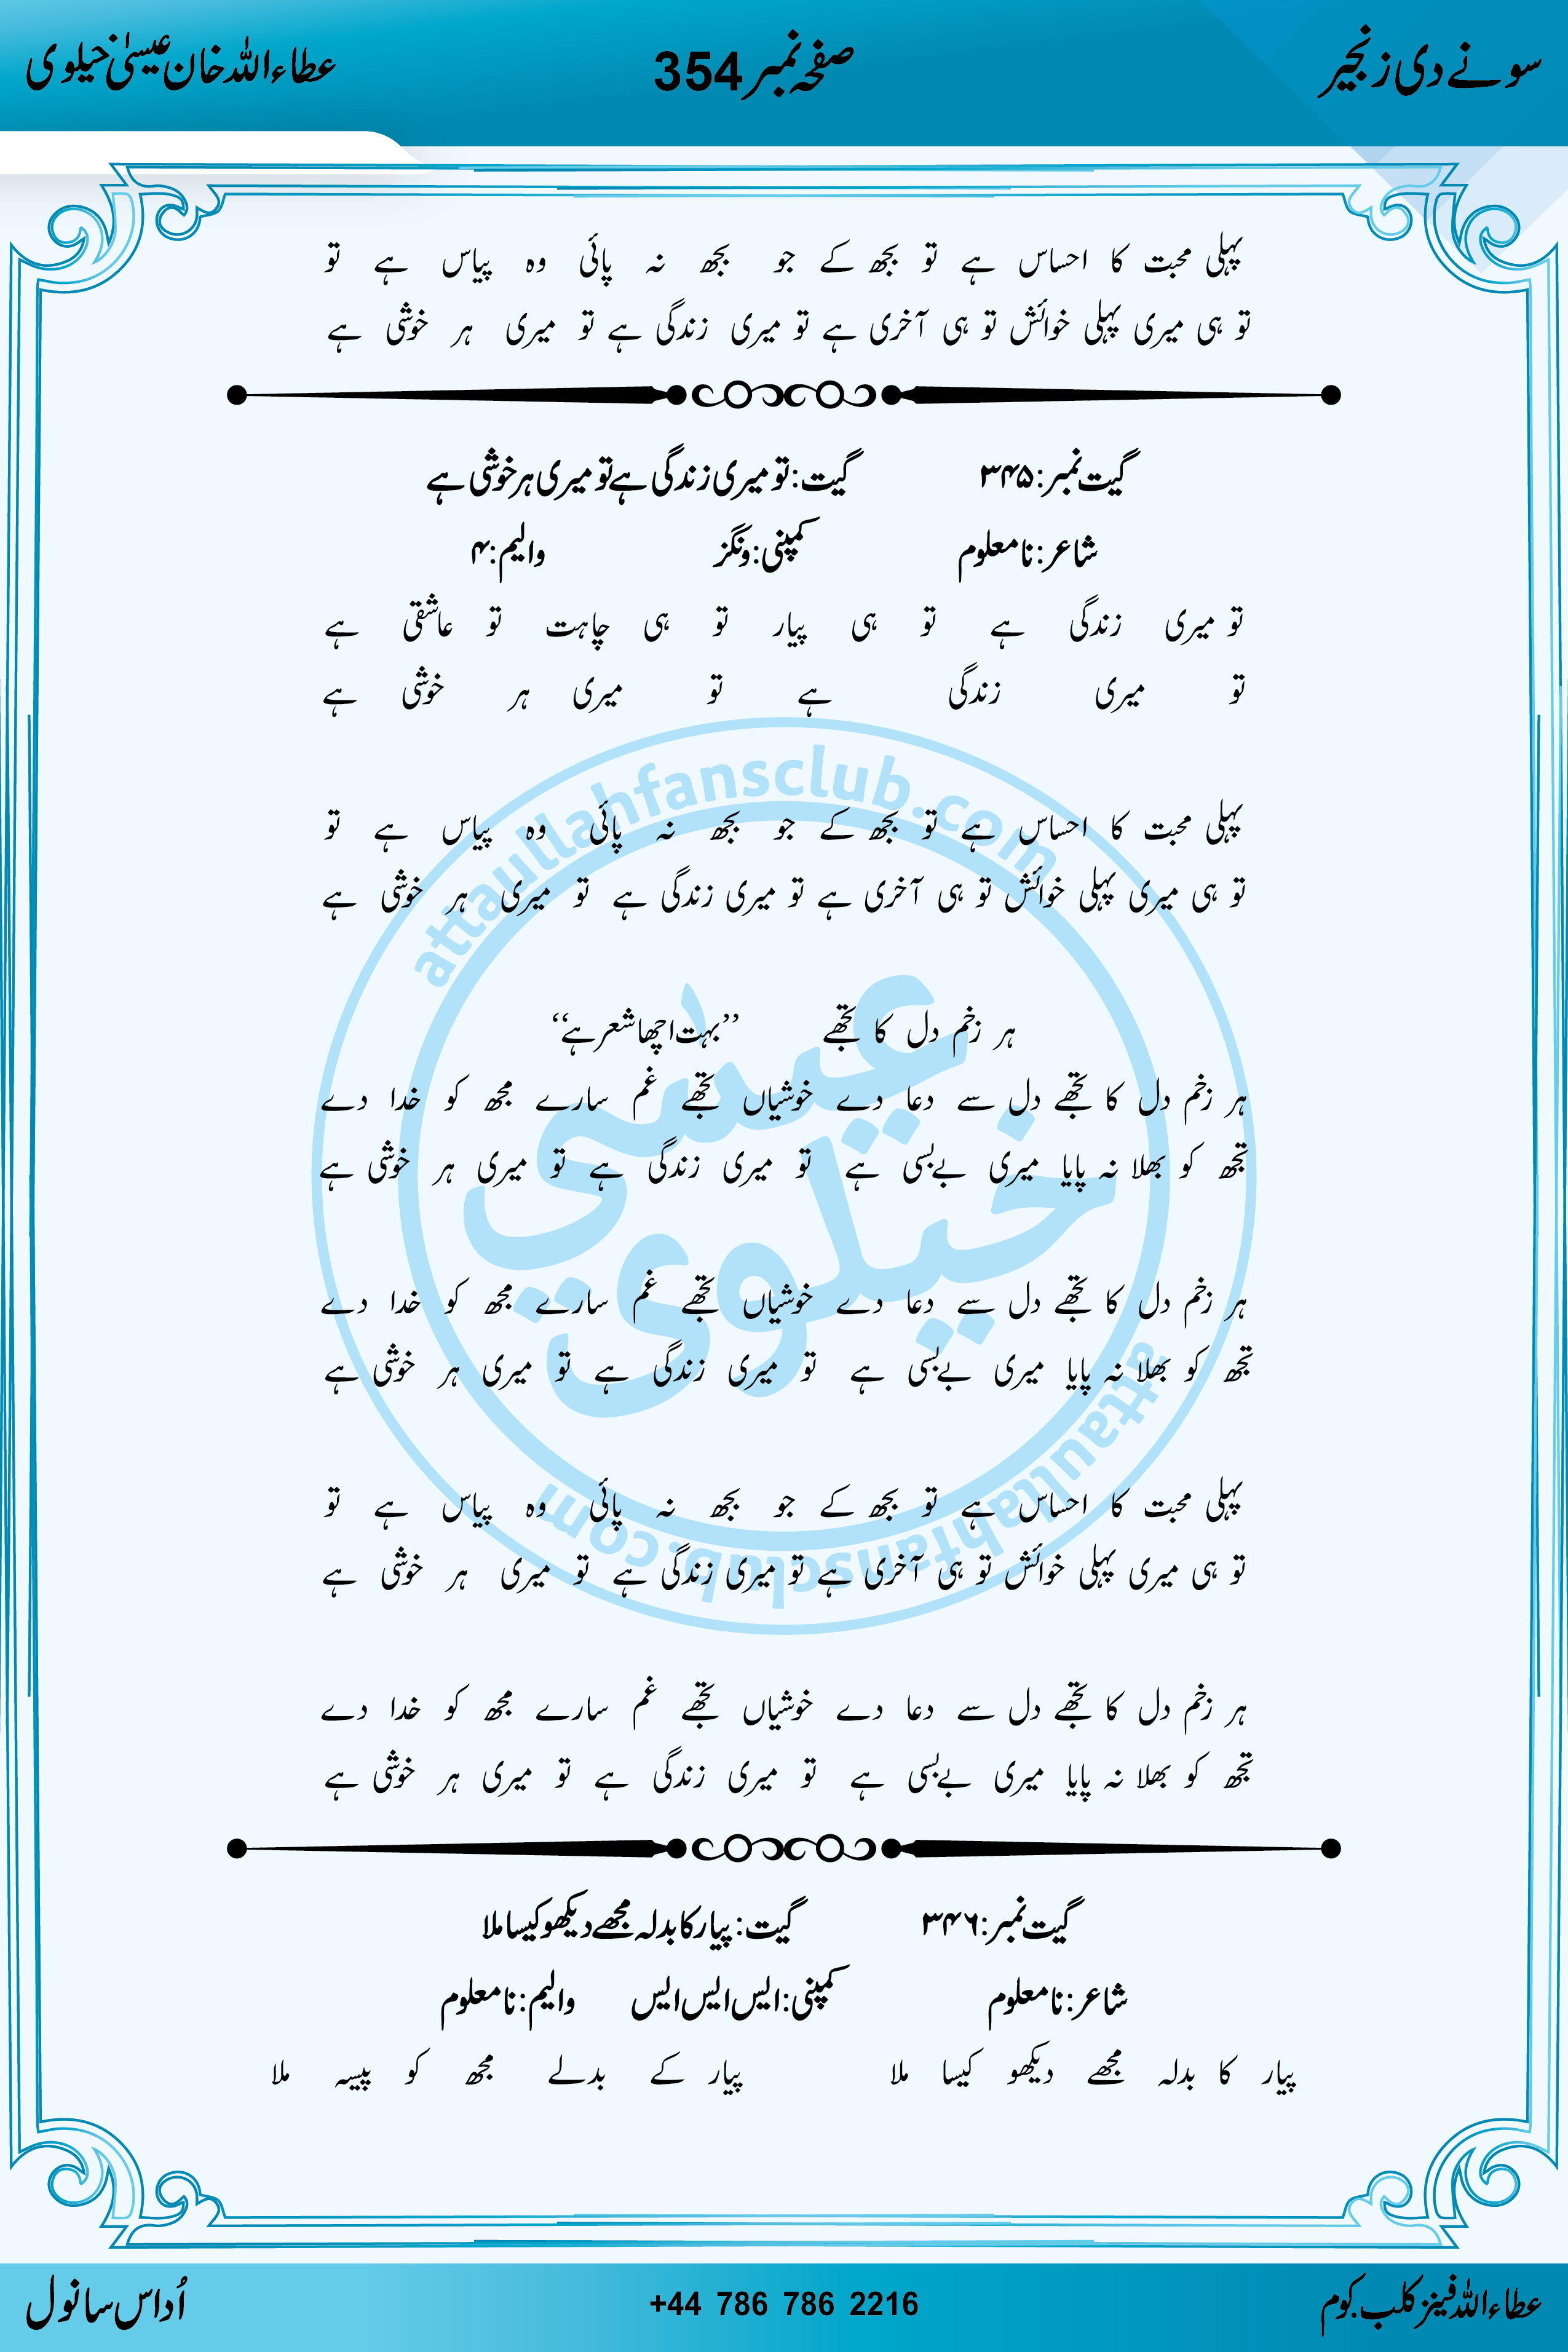 سونے دی زنجیر صفحہ نمبر 354 عطاءاللہ خان عیسیٰ خیلوی
پہلی محبت کا احساس ہے تو بجھ کے جو بجھ نہ پائی وہ پیاس ہے تو
تو ہی میری پہلی خوائش تو ہی آخری ہے تو میری زندگی ہے تو میری ہر خوشی ہے
گیت نمبر: ۳۴۵ گیت: تو میری زندگی ہے تو میری ہر خوشی ہے
شاعر: نامعلوم کمپنی: ونگز والیم: ۴
تو میری زندگی ہے تو ہی پیار تو ہی چاہت تو عاشقی ہے
تو میری زندگی ہے تو میری ہر خوشی ہے
پہلی محبت کا احساس ہے تو بجھ کے جو بجھ نہ پائی وہ پیاس ہے تو
تو ہی میری پہلی خوائش تو ہی آخری ہے تو میری زندگی ہے تو میری ہر خوشی ہے
ہر زخم دل کا تجھے ’’بہت اچھا شعر ہے‘‘
ہر زخم دل کا تجھے دل سے دعا دے خوشیاں تجھے غم سارے مجھ کو خدا دے
تجھ کو بھلا نہ پایا میری بے بسی ہے تو میری زندگی ہے تو میری ہر خوشی ہے
ہر زخم دل کا تجھے دل سے دعا دے خوشیاں تجھے غم سارے مجھ کو خدا دے
تجھ کو بھلا نہ پایا میری بے بسی ہے تو میری زندگی ہے تو میری ہر خوشی ہے
پہلی محبت کا احساس ہے تو بجھ کے جو بجھ نہ پائی وہ پیاس ہے تو
تو ہی میری پہلی خوائش تو ہی آخری ہے تو میری زندگی ہے تو میری ہر خوشی ہے
ہر زخم دل کا تجھے دل سے دعا دے خوشیاں تجھے غم سارے مجھ کو خدا دے
تجھ کو بھلا نہ پایا میری بے بسی ہے تو میری زندگی ہے تو میری ہر خوشی ہے
گیت نمبر: ۳۴۶ گیت: پیار کا بدلہ مجھے دیکھو کیسا ملا
شاعر: نامعلوم کمپنی: ایس ایس ایس والیم: نامعلوم
پیار کا بدلہ مجھے دیکھو کیسا ملا پیار کے بدلے مجھ کو پیسہ ملا
عطاءاللہ فینز کلب.کوم +44 786 786 2216 اُداس سانول
attaullahfansclub.com
عیسٰی
خیلوی
attaullahfansclub.com